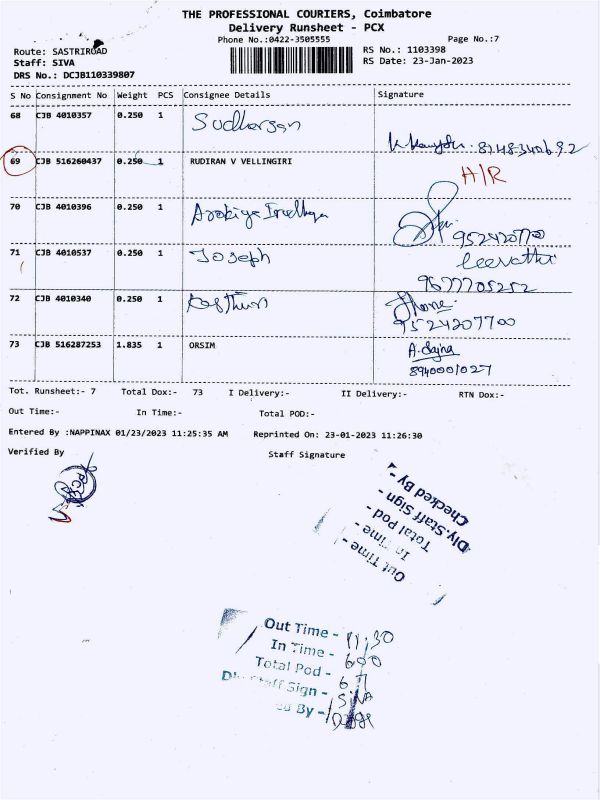 THE PROFESSIONAL COURIERS, Coimbatore
Delivery Runsheet - PCX
Phone No.:0422-3505555 Page No.:7
Route: SASTRIROAD RS No.: 1103398
Staff: SIVA RS Date: 23-Jan-2023
DRS No.: DCJB110339807
S No Consignment No Weight PCS Consignee Details Signature
68 CJB 4010357 0.250 1 Sudharsan
69 CJB 516260437 0.250 1 RUDIRAN V VELLINGIRI H/R
70 CJB 4010396 0.250 1 9524207700
71 CJB 4010537 0.250 1 Joseph
9677705252
72 CJB 4010340 0.250 1
9524207700
73 CJB 516287253 1.835 1 ORSIM A. Sajna
8940001027
Tot. Runsheet:- 7 Total Dox:- 73 I Delivery:- II Delivery:- RTN Dox:-
Out Time:- In Time:- Total POD:-
Entered By :NAPPINAX 01/23/2023 11:25:35 AM Reprinted On: 23-01-2023 11:26:30
Verified By Staff Signature
Checked By -
Dly.Staff Sign -
Total Pod -
In Time -
Out Time -
Out Time - 11,30
In Time - 600
Total Pod - 67
Sign - SIVA
ed By -